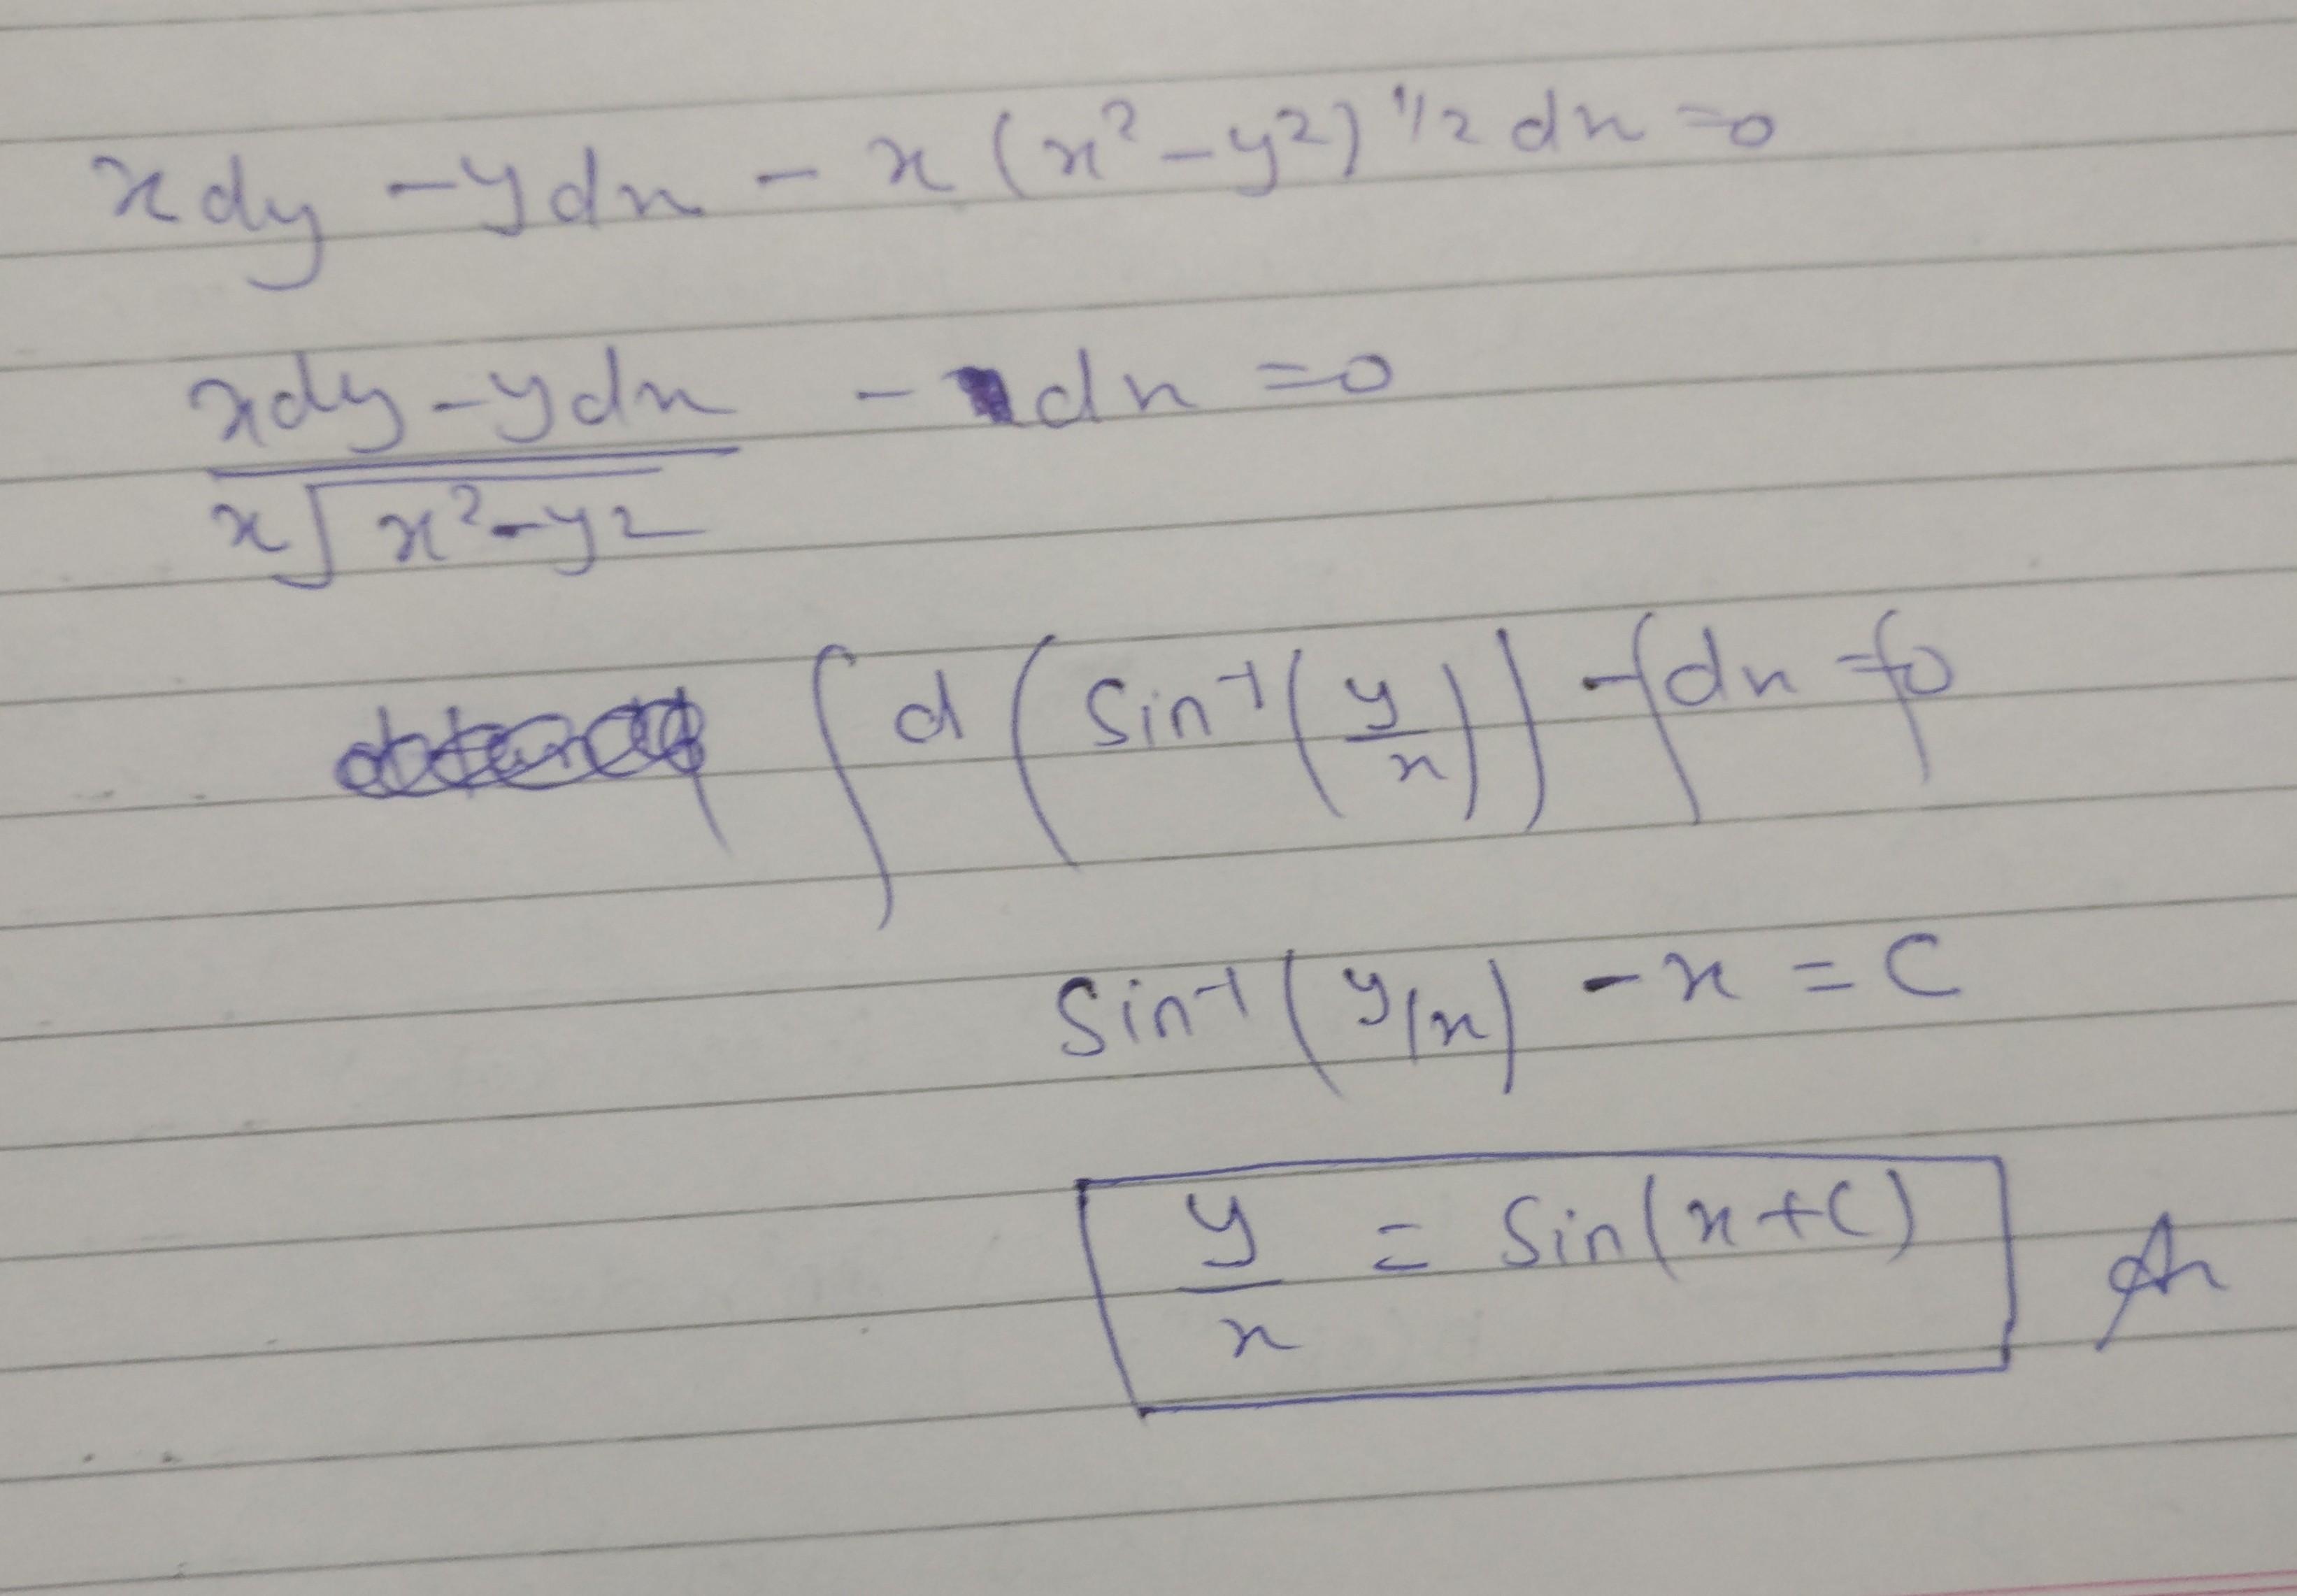 xdy - ydx - x (x² - y²)^1/2 dx = 0
xdy - ydx / x√x² - y² - dx = 0
∫ d ( Sin⁻¹ ( y/x ) ) - ∫ dx = ∫ 0
Sin⁻¹ ( y/x ) - x = C
y/x = Sin(x + C) An